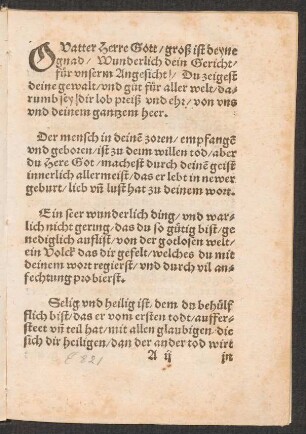 O Vatter Herre Gott / groß ist deyne
gnad / Wunderlich dein Gericht /
für vnserm Angesicht / Du zeigest
deine gewalt / vnd güt für aller welt / da-
rumb sey dir lob preiß vnd ehr / von vns
vnd deinem gantzem heer.
Der mensch in deinē zoren / empfangē
vnd geboren / ist zů dem willen tod / aber
du Here Got / machest durch deinē geist
innerlich allermeist / das er lebt in newer
geburt / lieb vñ lust hat zů deinem wort.
Ein seer wunderlich ding / vnd war-
lich nicht gering / das du so gütig bist / ge
nediglich auflist / von der gotlosen welt /
ein Volck das dir gefelt / welches du mit
deinem wort regierst / vnd durch vil an-
fechtung probierst.
Selig vnd heilig ist / dem du behülf
flich bist / das er vom ersten todt / auffer-
steet vñ teil hat / mit allen glaubigen / die
sich dir heiligen / dan der ander tod wirt
A ij jn